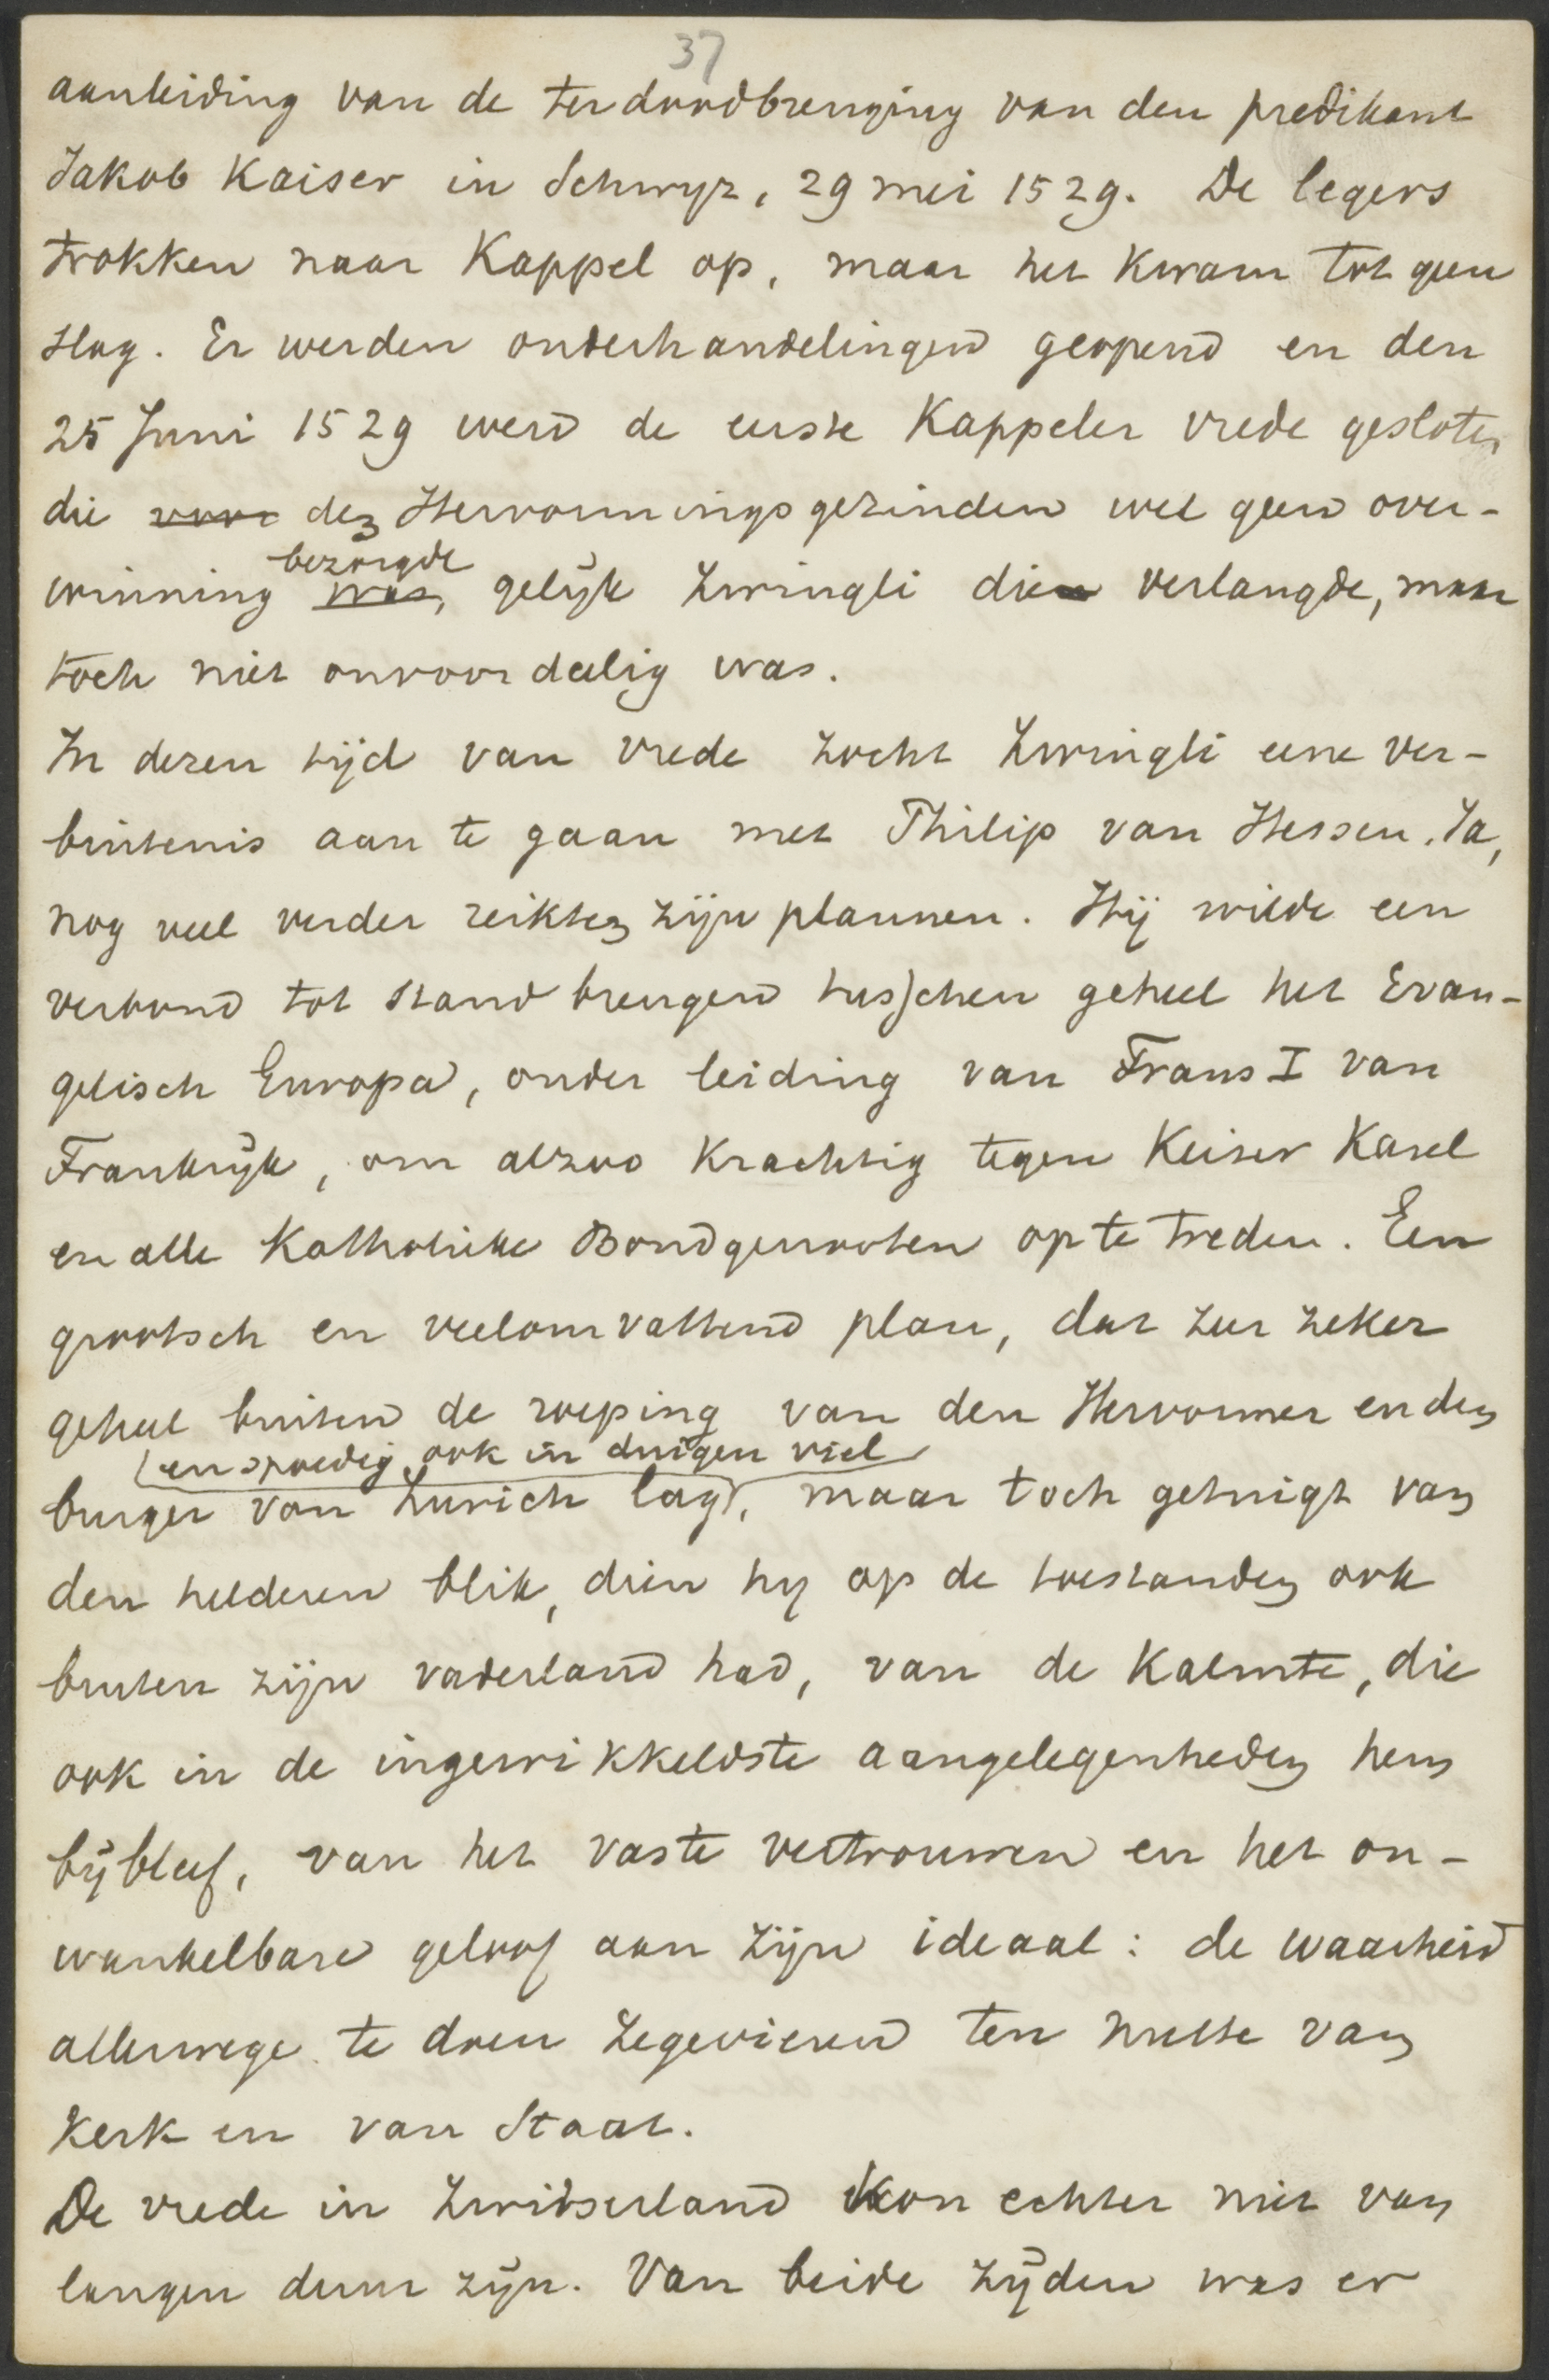 37
aanleiding van de terdoodbrenging van den predikant
Jakob Kaiser in Schwyz, 29 mei 1529. De legers
trokken naar Kappel op, maar het kwam tot geen
slag. Er werden onderhandelingen geopend en den
25 Juni 1529 werd de eerste Kappeler vrede gesloten
die voor den Hervormingsgezinden wel geen over-
bezorgde
winning was, gelijk Zwingli die verlangde, maar
toch niet onvoordeelig was.
In dezen tijd van vrede zocht Zwingli eene ver-
bintenis aan te gaan met Philip van Hessen. Ja,
nog veel verder reikten zijn plannen. Hij wilde een
verbond tot stand brengen tusschen geheel het Evan-
gelisch Europa, onder leiding van Frans I van
Frankrijk, om alzoo krachtig tegen Keizer Karel
en alle Katholieke Bondgenooten op te treden. Een
grootsch en veelomvattend plan, dat zeer zeker
geheel buiten de roeping van den Hervormer en den
(en spoedig ook in duigen viel
burger van Zurich lag), maar toch getuigt van
den helderen blik, dien hy op de toestanden ook
buiten zijn vaderland had, van de kalmte, die
ook in de ingewikkeldste aangelegenheden hem
bijbleef, van het vaste vertrouwen en het on-
wankelbare geloof aan zijn ideaal: de waarheid
allerwege te doen zegevieren ten nutte van
Kerk en van Staat.
De vrede in Zwitserland kon echter niet van
langen duur zijn. Van beide zijden was er